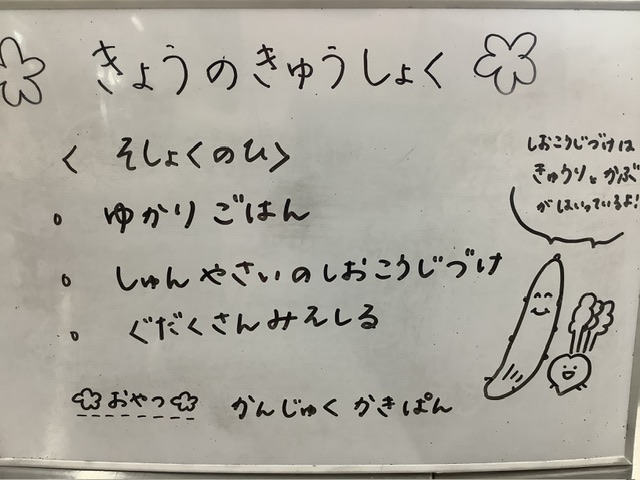 きょうのきゅうしょく
＜ そしょくのひ＞
。 ゆかりごはん
。 しゅんやさいのしおこうじづけ
。 ぐだくさんみえしる
おやつ かんじゅく かきぱん
しおこうじづけは
きゅうりとかぶ
がはいっているよ!